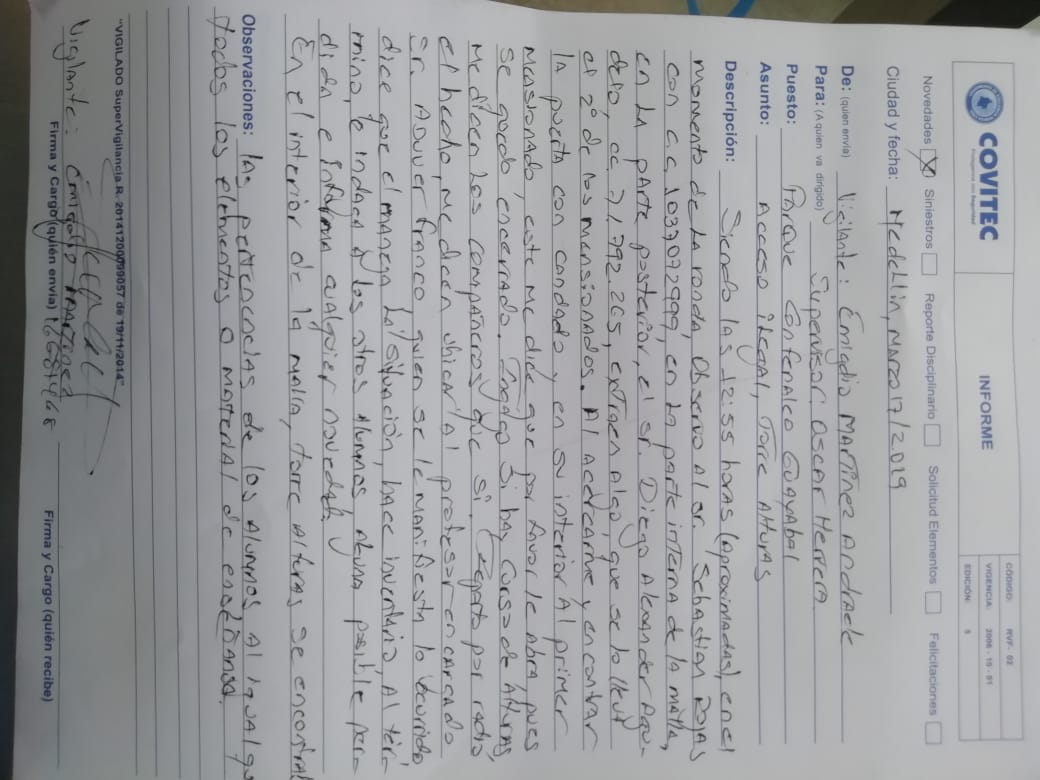 COVITEC
Protegemos con Seguridad
INFORME
CÓDIGO: RVF- 02
VIGENCIA: 2006-10-01
EDICIÓN: 5
Novedades X Siniestros Reporte Disciplinario Solicitud Elementos Felicitaciones
Ciudad y fecha: Medellín, Marzo 17/2.019
De: (quien envía) Vigilante: Emigdio Martínez Andrade
Para: (A quien va dirigido) Supervisor: Oscar Herrera
Puesto: Parque Confenalco Guayabal
Asunto: Acceso ilegal, Torre Alturas
Descripción: Siendo las 12:55 horas (Aproximadas), en el
momento de la ronda, observo al sr. Sebastian Rojas
con c.c. 1037072999, en la parte interna de la malla,
en la parte posterior, el sr. Diego Alexander Agu-
delo, cc. 71.792.265, extraen algo, que se lo lleva
el 2º de los mensionados. Al acercarme y encontrar
la puerta con candado y en su interior al primer
mensionado, este me dice que por favor le abra, pues
se quedo encerrado. Indago si hay curso de Alturas,
me dicen los compañeros que si. Reporto por radio
el hecho, me dicen ubicar al profesor encargado
Sr. Aduver Franco, quien se le manifiesta lo ocurrido
dice que el maneja la situación, hace inventario, Al tér-
mino, le indaca a los otros alumnos, alguna posible per-
dida e informa cualquier novedad.
En el interior de la malla, torre alturas se encontral
Observaciones: las pertenencias de los alumnos al igual q
todos los elementos o material de enseñansa.
"VIGILADO SuperVigilancia R. 20141200099057 de 19/11/2014"
Vigilante: Emigdio Martínez
Firma y Cargo (quién envía)
Firma y Cargo (quién recibe)